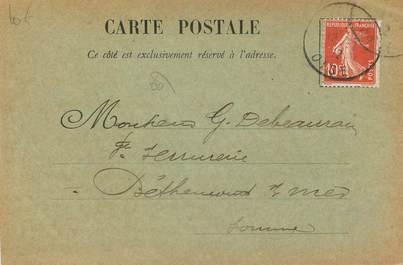 CARTE POSTALE
Ce côté est exclusivement réservé à l'adresse.
RÉPUBLIQUE FRANÇAISE
10c
POSTES
80
Monsieur G. Debeaurain
ft Serrurerie
Béthencourt s/ mer
Somme